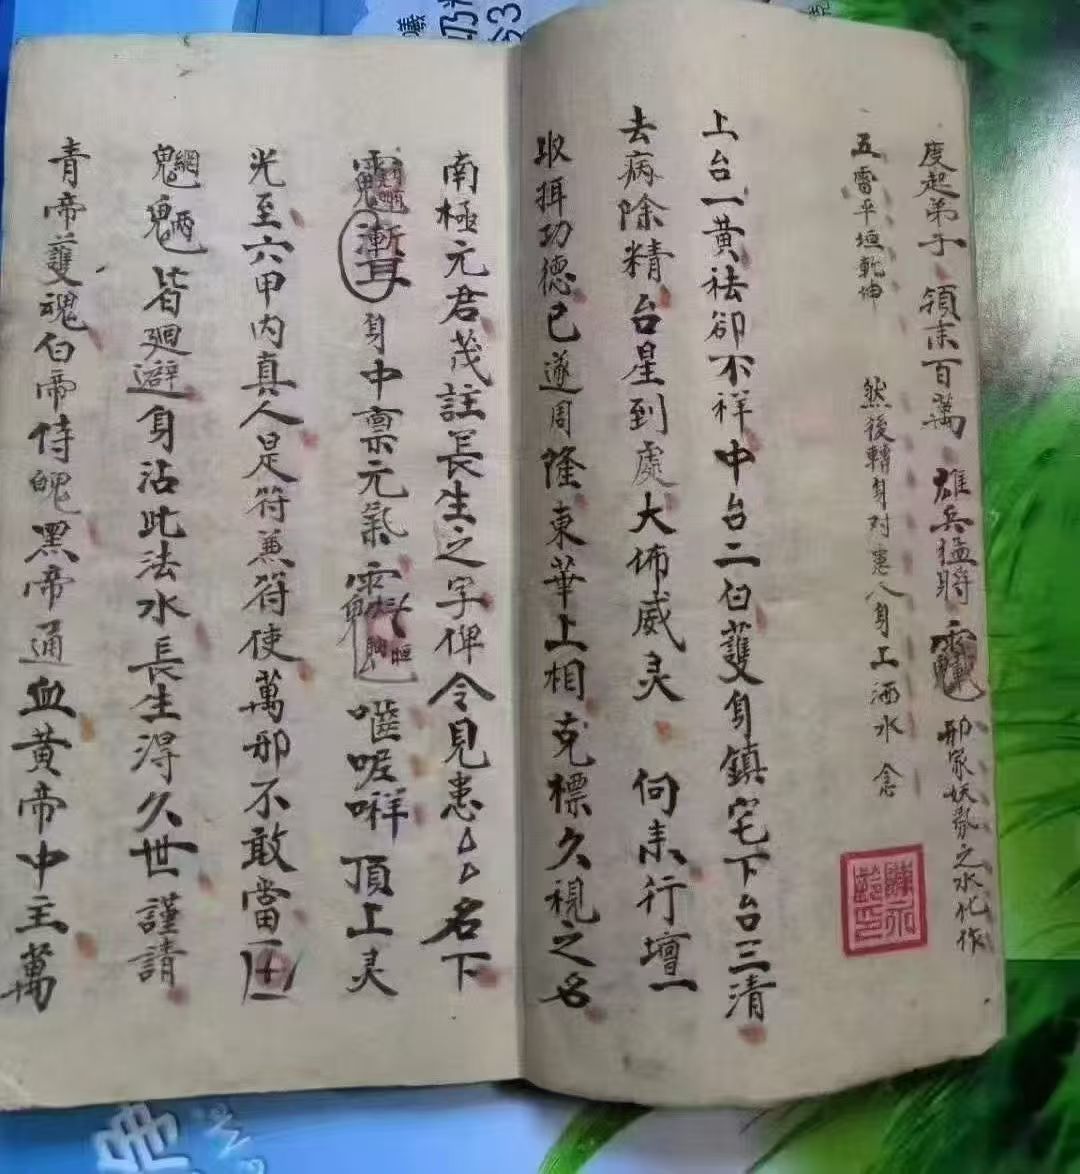 度起弟子 領来百萬 雄兵猛將 邪家妖氛之水化作
五雷平垣乾坤 然後轉身对患人身上洒水 念
上台一黄袪卻不祥中台二白護身鎮宅下台三清
去病除精台星到處大佈威灵 伺来行壇一
取珥功德已遂周隆東華上相克標久視之名
南極元君茂註長生之字俾令見患△△名下
身中禀元氣 頂上灵
光至六甲内真人是符兼符使萬邪不敢當
皆廻避身沾此法水長生得久世謹請
青帝護魂白帝侍魄黑帝通血黄帝中主萬